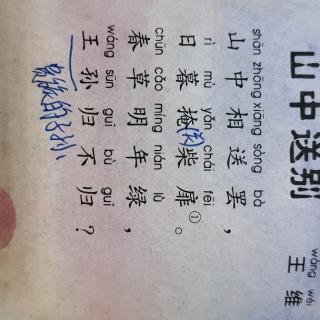 山中送别
wáng wéi
王维
shān zhōng xiāng sòng bà
山中相送罢，
rì mù yǎn chái fēi
日暮掩柴扉①。
chūn cǎo míng nián lǜ
春草明年绿，
wáng sūn guī bù guī
王孙归不归？